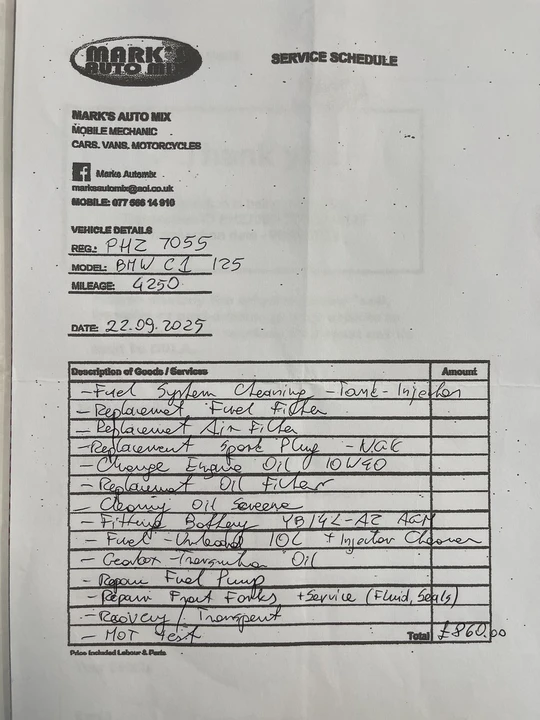 MARK'S
AUTO MIX
SERVICE SCHEDULE
MARK'S AUTO MIX
MOBILE MECHANIC
CARS. VANS. MOTORCYCLES
Marks Automix
marksautomix@aol.co.uk
MOBILE: 077 566 14 910
VEHICLE DETAILS
REG.: PHZ 7055
MODEL: BMW C1 125
MILEAGE: 4250
DATE: 22.09.2025
Description of Goods / Services Amount
- Fuel System Cleaning - Tank - Injector
- Replacemet Fuel Filter
- Replacemet Air Filter
- Replacement Spark Plug - NGK
- Change Engine Oil 10W40
- Replacemet Oil Filter
- Cleaning Oil Screene
- Fitting Battery YB14L-A2 AGM
- Fuel - Unleaded 10L + Injector Cleaner
- Gearbox - Oil
- Repair Fuel Pump
- Repair Front Forks + Service (Fluid, Seals)
- Recovery / Transport
- MOT Test Total £860.00
Price Included Labour & Parts